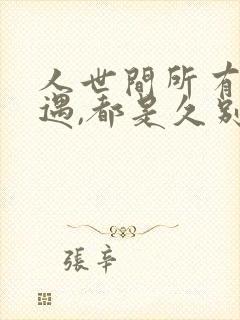 人世間所有
遇,都是久別
張辛